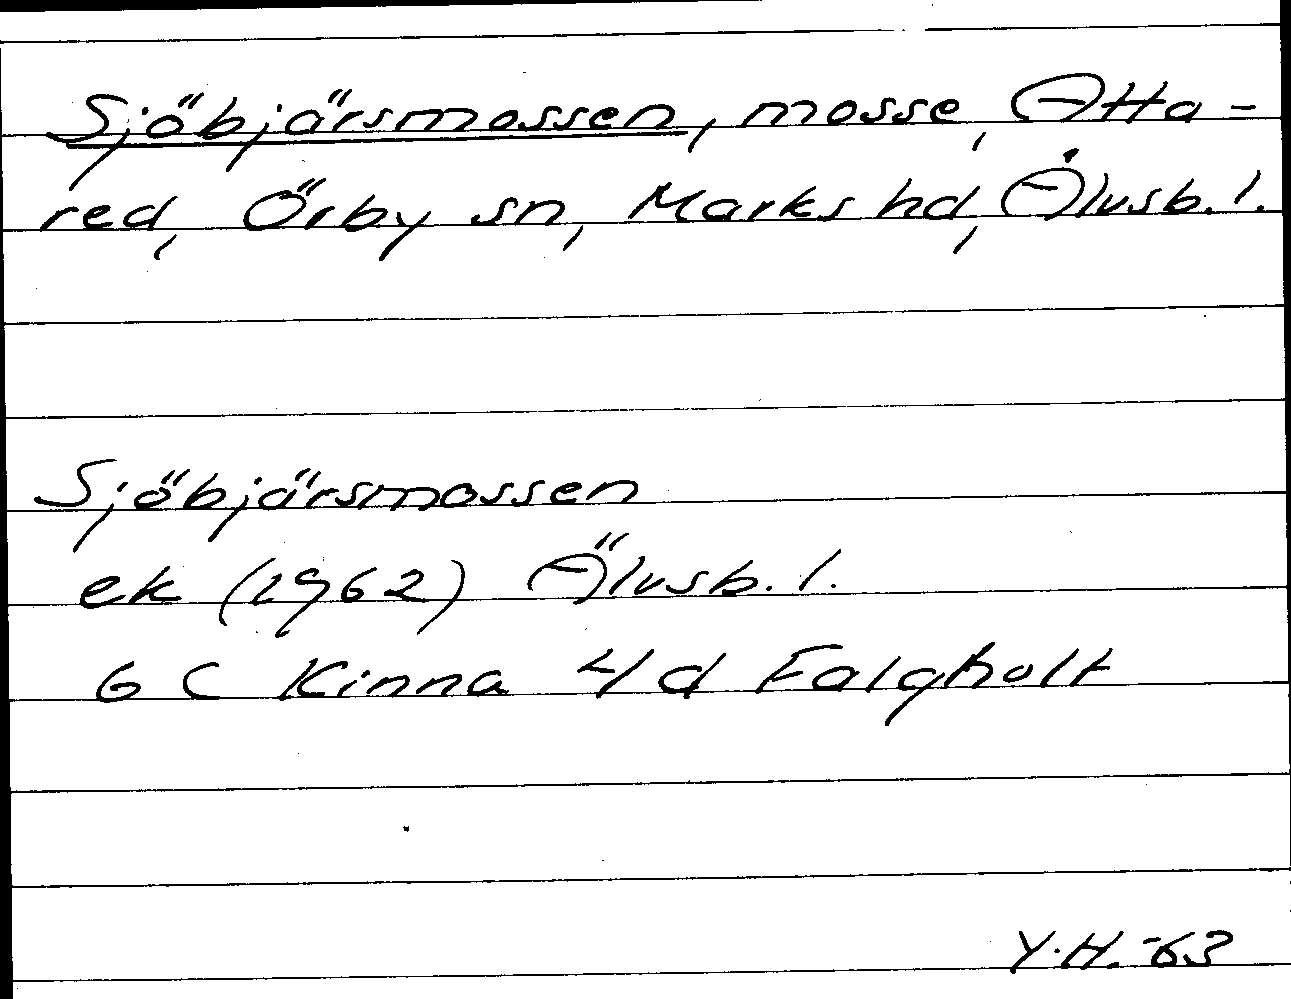 Sjöbjärsmossen, mosse, Atta-
red, Örby sn, Marks hd, Älvsb. l.
Sjöbjärsmossen
ek (1962) Älvsb. l.
6 C Kinna 4 d Falgholt
Y.H. -63